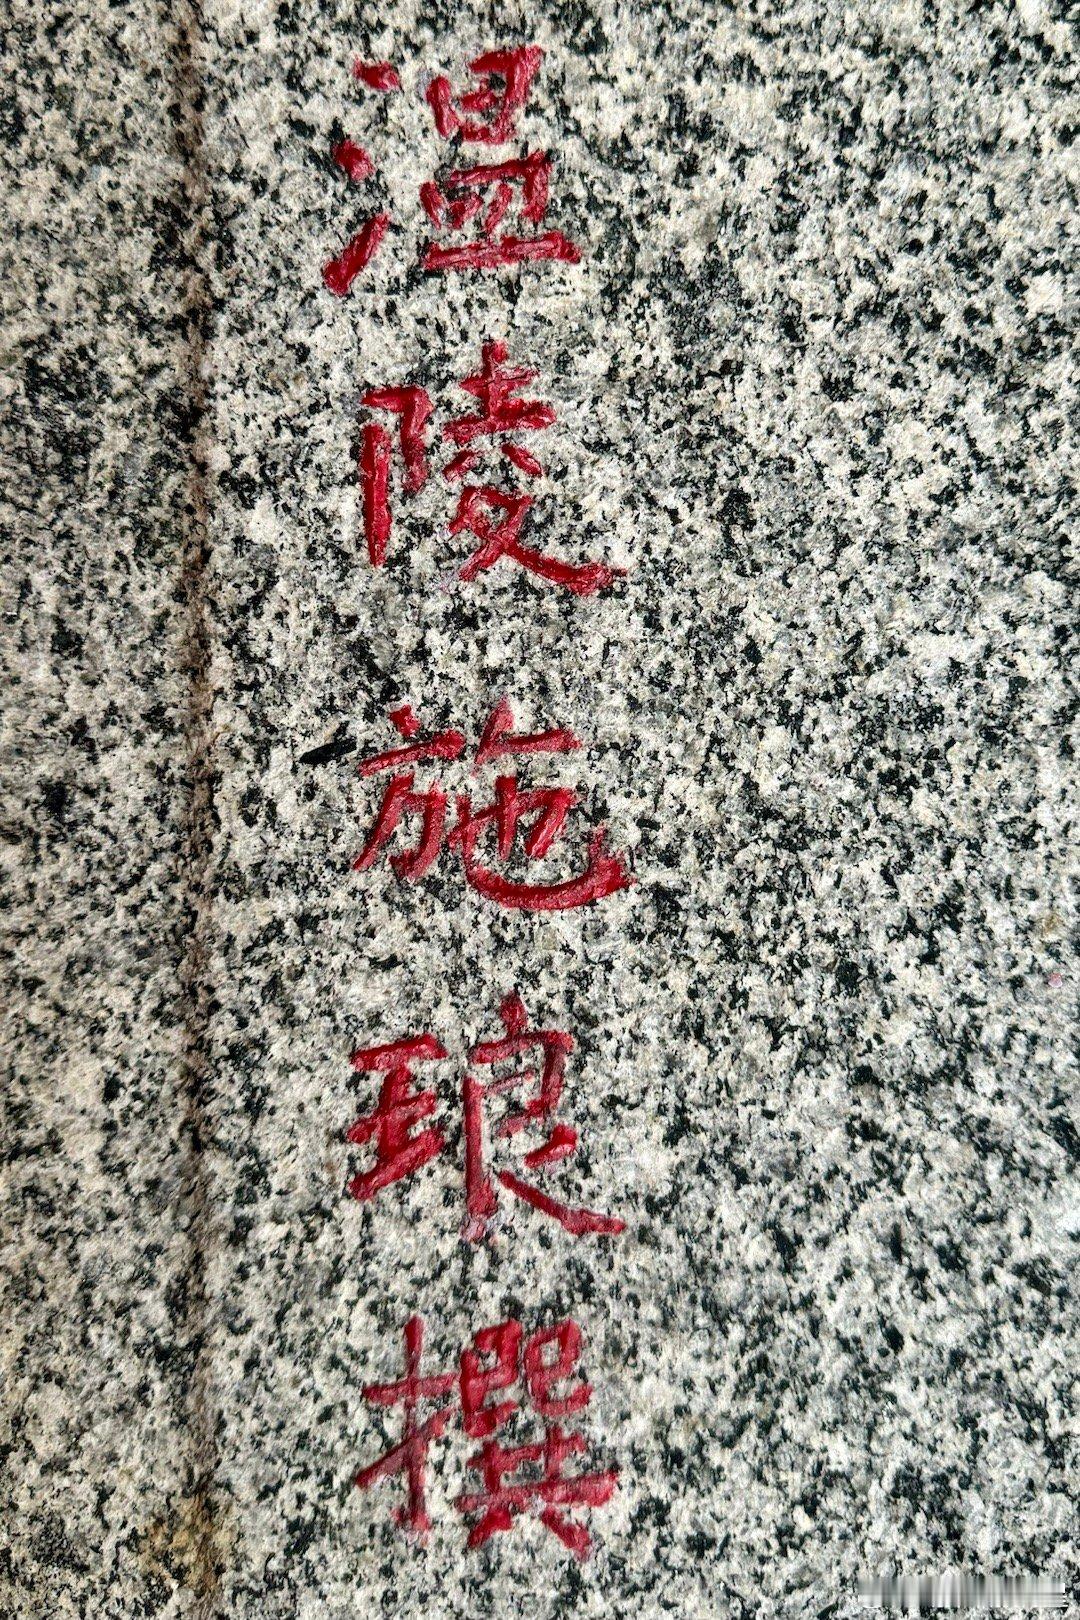 温陵施琅撰